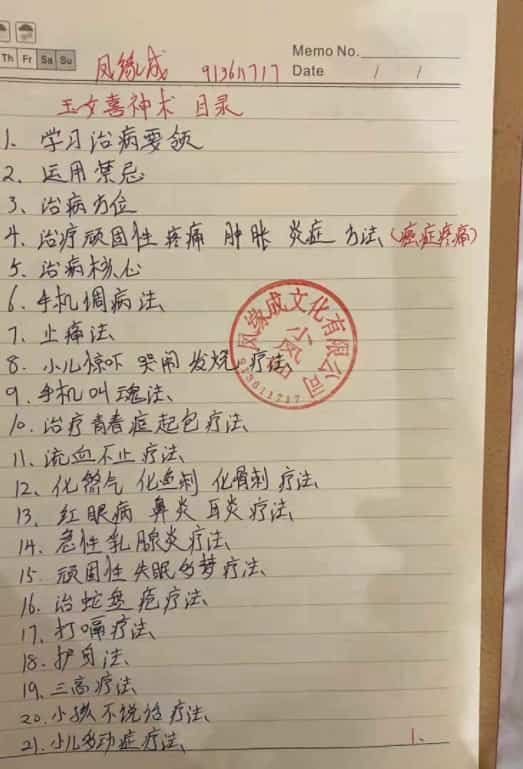 Memo No.
Th Fr Sa Su
凤缘成 913611717 Date / /
玉女喜神术 目录
1、学习治病要领
2、运用禁忌
3、治病方位
4、治疗顽固性 疼痛 肿胀 炎症 方法（癌症疼痛）
5、治病核心
6、手机调病法
7、止痛法
8、小儿惊吓 哭闹 发烧 疗法、
9、手机叫魂法、
10、治疗青春症起包疗法、
11、流血不止疗法、
12、化煞气 化鱼刺 化骨刺 疗法、
13、红眼病 鼻炎 耳炎 疗法、
14、急性乳腺炎疗法、
15、顽固性失眠多梦疗法、
16、治蛇盘疮疗法、
17、打嗝疗法、
18、护身法、
19、三高疗法、
20、小孩不说话疗法、
21、小儿多动症疗法、
1、
凤缘成文化有限公司
913611717